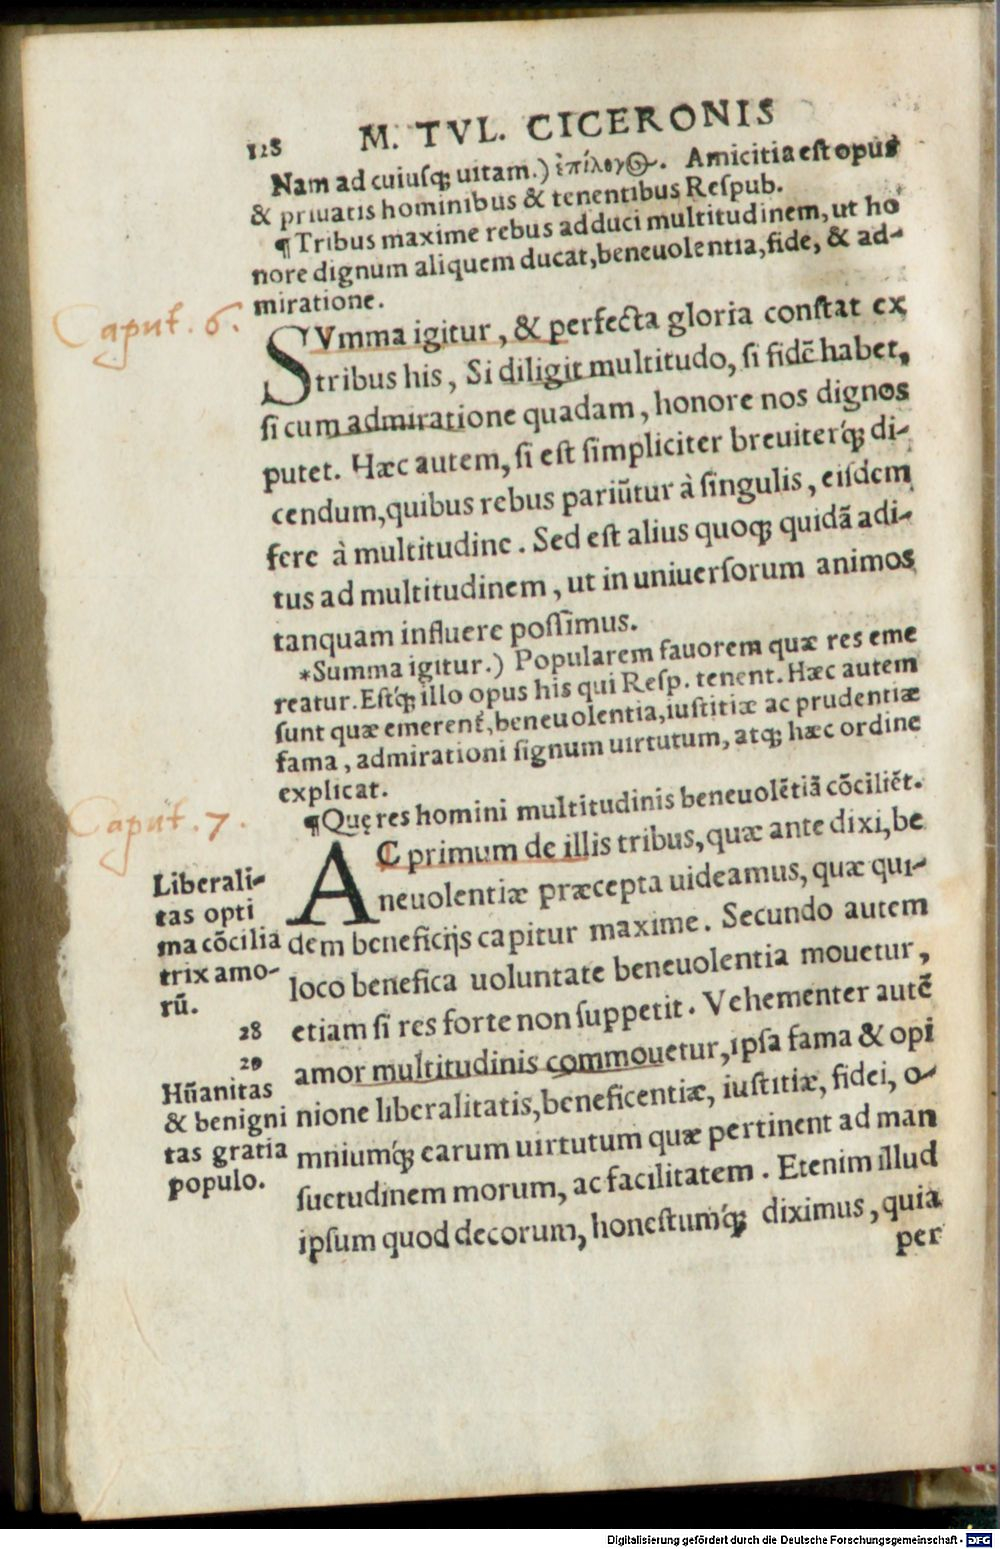 128 M. TVL. CICERONIS
Nam ad cuiusq́ꝫ uitam.) ἐπίλογος. Amicitia est opus
& priuatis hominibus & tenentibus Respub.
¶ Tribus maxime rebus adduci multitudinem, ut ho
nore dignum aliquem ducat, beneuolentia, fide, & ad-
miratione.
Caput. 6.
SVmma igitur, & perfecta gloria constat ex
tribus his, Si diligit multitudo, si fidē habet,
si cum admiratione quadam, honore nos dignos
putet. Hæc autem, si est simpliciter breuiterq́ꝫ di-
cendum, quibus rebus pariūtur à singulis, eisdem
fere à multitudine. Sed est alius quoqꝫ quidā adi-
tus ad multitudinem, ut in uniuersorum animos
tanquam influere possimus.
*Summa igitur.) Popularem fauorem quæ res eme
reatur. Estq́ꝫ illo opus his qui Resp. tenent. Hæc autem
sunt quæ emerent̃, beneuolentia, iustitiæ ac prudentiæ
fama, admirationi signum uirtutum, atqꝫ hæc ordine
explicat.
Caput. 7.
¶ Quę res homini multitudinis beneuolētiā cōciliēt.
AC primum de illis tribus, quæ ante dixi, be
neuolentiæ præcepta uideamus, quæ qui-
dem beneficijs capitur maxime. Secundo autem
loco benefica uoluntate beneuolentia mouetur,
etiam si res forte non suppetit. Vehementer autē
amor multitudinis commouetur, ipsa fama & opi
nione liberalitatis, beneficentiæ, iustitiæ, fidei, o-
mniumq́ꝫ earum uirtutum quæ pertinent ad man
suetudinem morum, ac facilitatem. Etenim illud
ipsum quod decorum, honestumq́ꝫ diximus, quia
per
Liberali-
tas opti
ma cōcilia
trix amo-
rū.
28
29
Hūanitas
& benigni
tas gratia
populo.
Digitalisierung gefördert durch die Deutsche Forschungsgemeinschaft - DFG